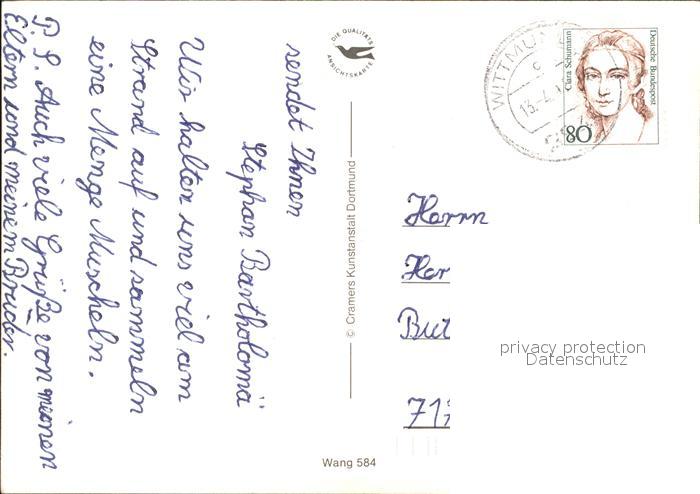 sendet Ihnen
Stephan Bartholomä
Wir halten uns viel am
Strand auf und sammeln
eine Menge Muscheln.
P.S. Auch viele Grüße von meinen
Eltern und meinem Bruder.
DIE QUALITÄTS
ANSICHTSKARTE
© Cramers Kunstanstalt Dortmund
Wang 584
WITTMUN
13.-4.
Clara Schumann
Deutsche Bundespost
80
Herrn
Her
But
71
privacy protection
Datenschutz